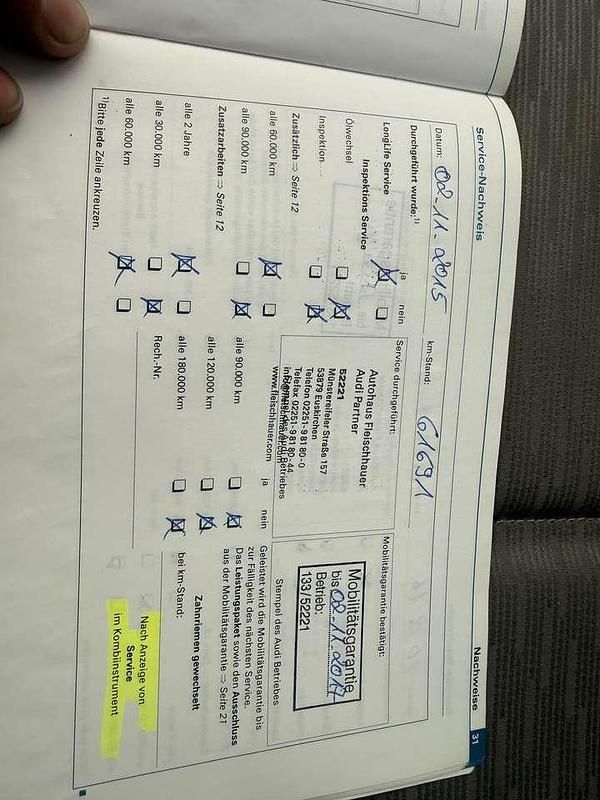 Service-Nachweis
Nachweise 31
Datum: 02-11-2015
km-Stand: 61691
Durchgeführt wurde:¹⁾
ja nein
LongLife Service
Inspektions Service
Ölwechsel
Inspektion
Zusätzlich ⇒ Seite 12
alle 60.000 km
alle 90.000 km
Zusatzarbeiten ⇒ Seite 12
alle 2 Jahre
alle 30.000 km
alle 60.000 km
¹⁾Bitte jede Zeile ankreuzen.
Service durchgeführt:
Autohaus Fleischhauer
Audi Partner
52221
Münstereifeler Straße 157
53879 Euskirchen
Telefon 02251-9 81 80-0
Telefax 02251-9 81 80-44
info@fleischhauer.com
Stempel des Audi Betriebes
www.fleischhauer.com
ja nein
alle 90.000 km
alle 120.000 km
alle 180.000 km
Rech.-Nr.
Mobilitätsgarantie bestätigt:
Mobilitätsgarantie
bis 02-11-2017
Betrieb:
133/52221
Stempel des Audi Betriebes
Geleistet wird die Mobilitätsgarantie bis
zur Fälligkeit des nächsten Service.
Das Leistungspaket sowie den Ausschluss
aus der Mobilitätsgarantie ⇒ Seite 21
Zahnriemen gewechselt
bei km-Stand:
Nach Anzeige von
Service
im Kombiinstrument